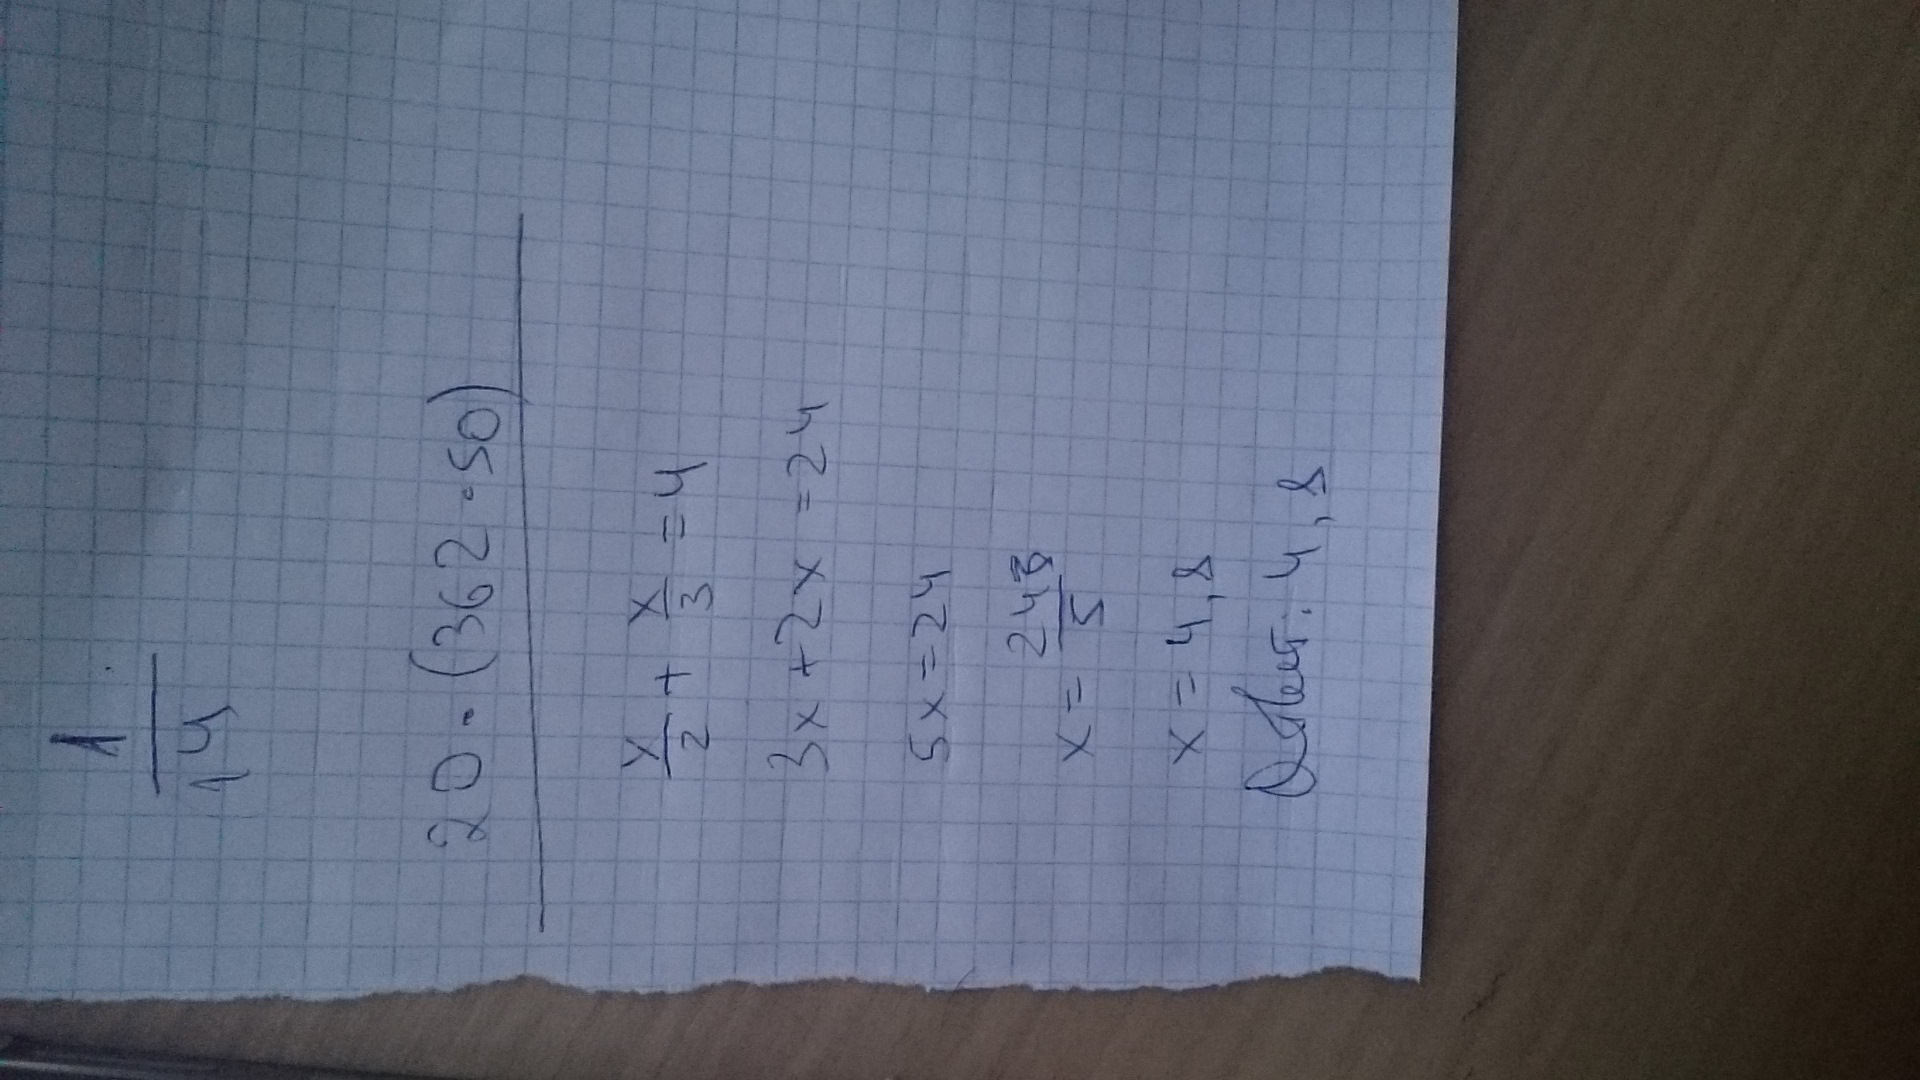 1
14
20·(362·50)
x/2 + x/3 = 4
3x+2x=24
5x=24
x= 24/5
x=4,8
Ответ: 4,8